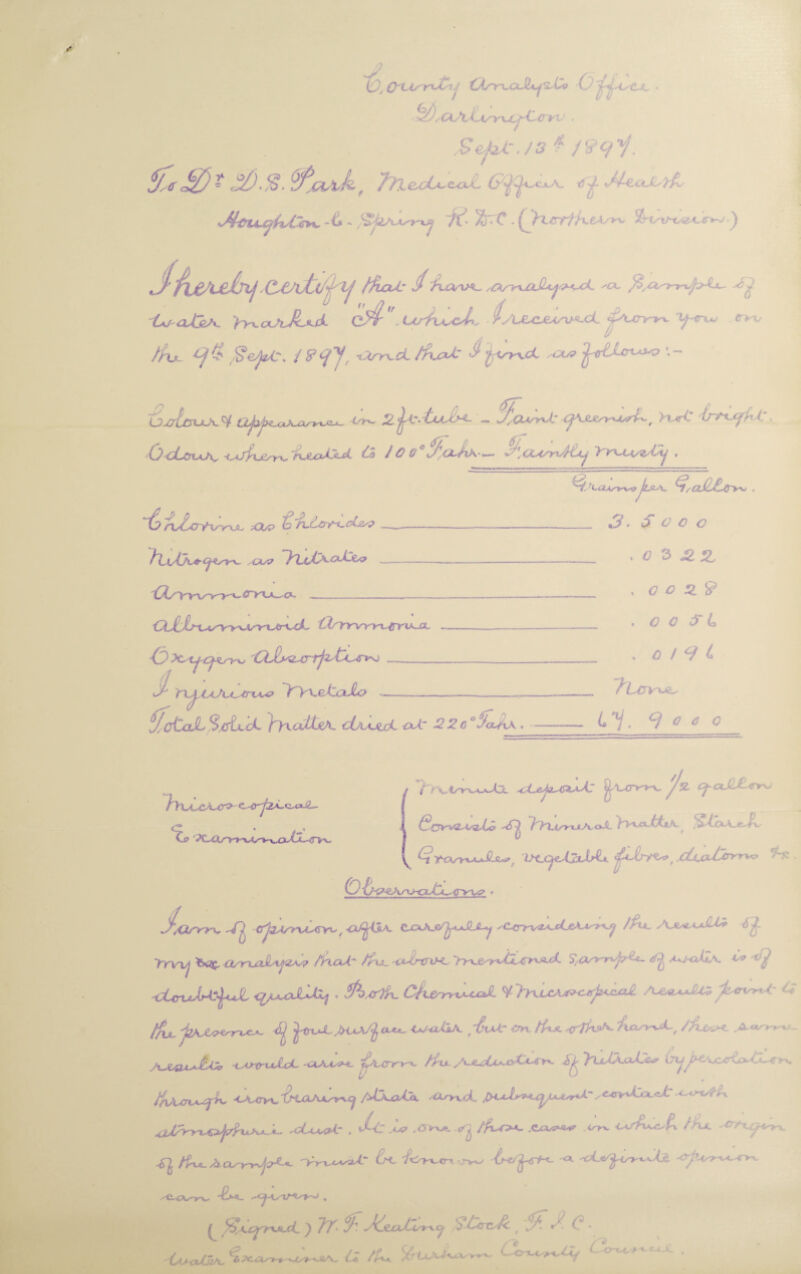 County Analysts Office.
Darlington.
Sept. 13th 1897.
To Dr D. S. Park, Medical Officer of Health
Houghton-le-Spring R. D. C. (Northern Division.)
I hereby certify that I have analysed a Sample of
water marked "A" which I received from you on
the 9th Sept. 1897, and that I find as follows:-
Colour & appearance in 2 ft. tube - Faint greenish, not bright.
Odour when heated to 100° Fahr. - Faintly musty.
Grains per Gallon.
Chlorine as Chlorides 3.5000
Nitrogen as Nitrates .0322
Ammonia .0028
Albuminoid Ammonia .0056
Oxygen Absorption .0196
Injurious Metals None
Total Solid Matter dried at 220° Fahr. 67.9000
Microscopical Examination
Minute deposit from 1/2 gallon
Consists of Mineral Matter, Starch
Granules, vegetable fibres, diatoms &c.
Observations.
I am of opinion, after carefully considering the results of
my analysis that the above mentioned Sample of water is of
doubtful quality. Both Chemical & Microscopical results point to
the presence of foul surface water, but on the other hand, these same
results would arise from the reduction of Nitrates by percolation
through iron bearing strata and subsequent contact with
atmospheric dust. It is one of those cases in which the origin
of the sample must be known before a definite opinion
can be given.
(Signed) W. F. Keating Stock, F. I. C.
Water Examiner to the Durham County Council.